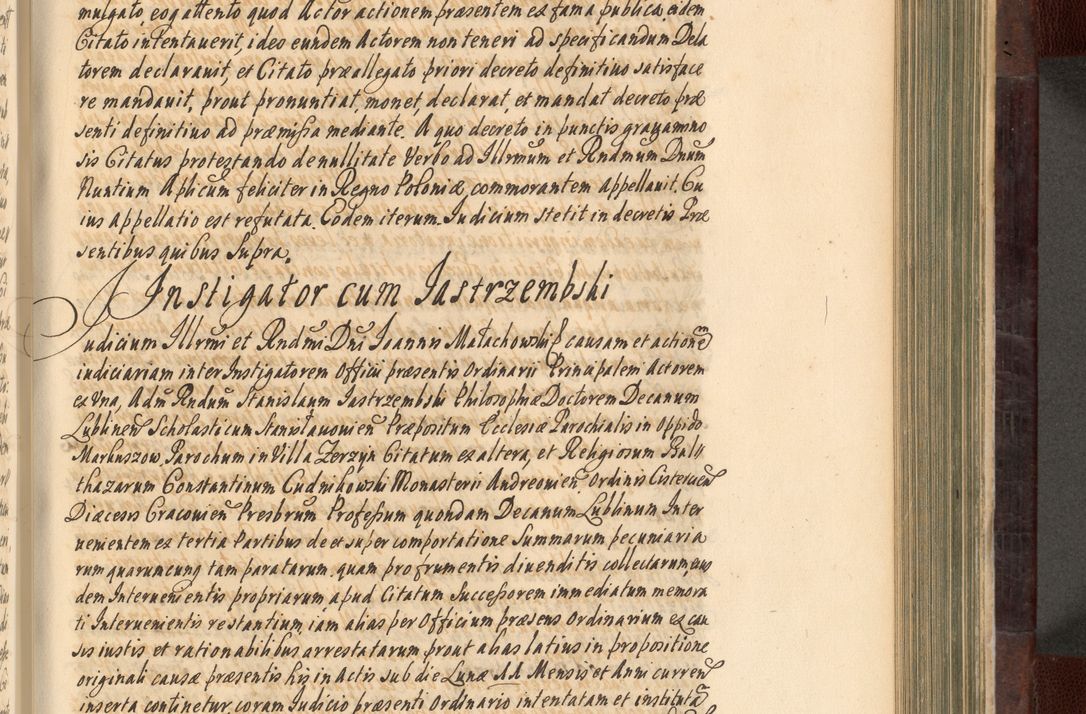 mulgato, eoq attento quod Actor actionem præsentem ex fama publica, eidem
Citato intentauerit, ideo eundem Actorem non teneri ad specificandum Dela
torem declarauit, et Citato præallegato priori decreto definitiuo satisface
re mandauit, prout pronuntiat, monet, declarat, et mandat decreto præ
senti definitiuo ad præmissa mediante. A quo decreto in punctis grauamino
sis Citatus protestando de nullitate Verbo ad Illrmum et Rndmum Dnum
Nuntium Aplicum feliciter in Regno Poloniæ commorantem Appellauit. Cu
ius Appellatio est refutata. Eodem iterum Iudicium stetit in decretis Præ
sentibus quibus Supra.
Instigator cum Jastrzembski
Iudicium Illrmi et Rndmi Dni Ioannis Małachowski causam et actionem
iudiciariam inter Instigatorem Officii præsentis Ordinarii Principalem Actorem
ex Vna, Adm Rndum Stanislaum Jastrzembski Philosophiæ Doctorem Decanum
Lublinen Scholasticum Stanislauouien Præpositum Ecclesiæ Parochialis in Oppido
Markuszow, Parochum in Villa Zerzyn Citatum ex altera, et Religiosum Bal
thazarum Constantinum Cudnikowski Monasterii Andreouien Ordinis Cistercien
Diæcesis Cracouien Presbrum Professum quondam Decanum Lublinum Inter
uenientem ex tertia Partibus de et super comportatione Summarum pecuniaria
rum quarumcunq tam paratarum quam pro frumentis diuenditis collectarum, eius
dem Interuenientis propriarum apud Citatum Successorem immediatum memora
ti Interuenientis restantium, iam alias per Officium præsens Ordinarium ex cau
sis iustis et rationabilibus arrestatarum prout alias latius in propositione
originali causæ præsentis his in Actis sub die Lunæ Mensis et Anni curren
inserta continetur, coram Iudicio præsenti Ordinario intentatam et institutã